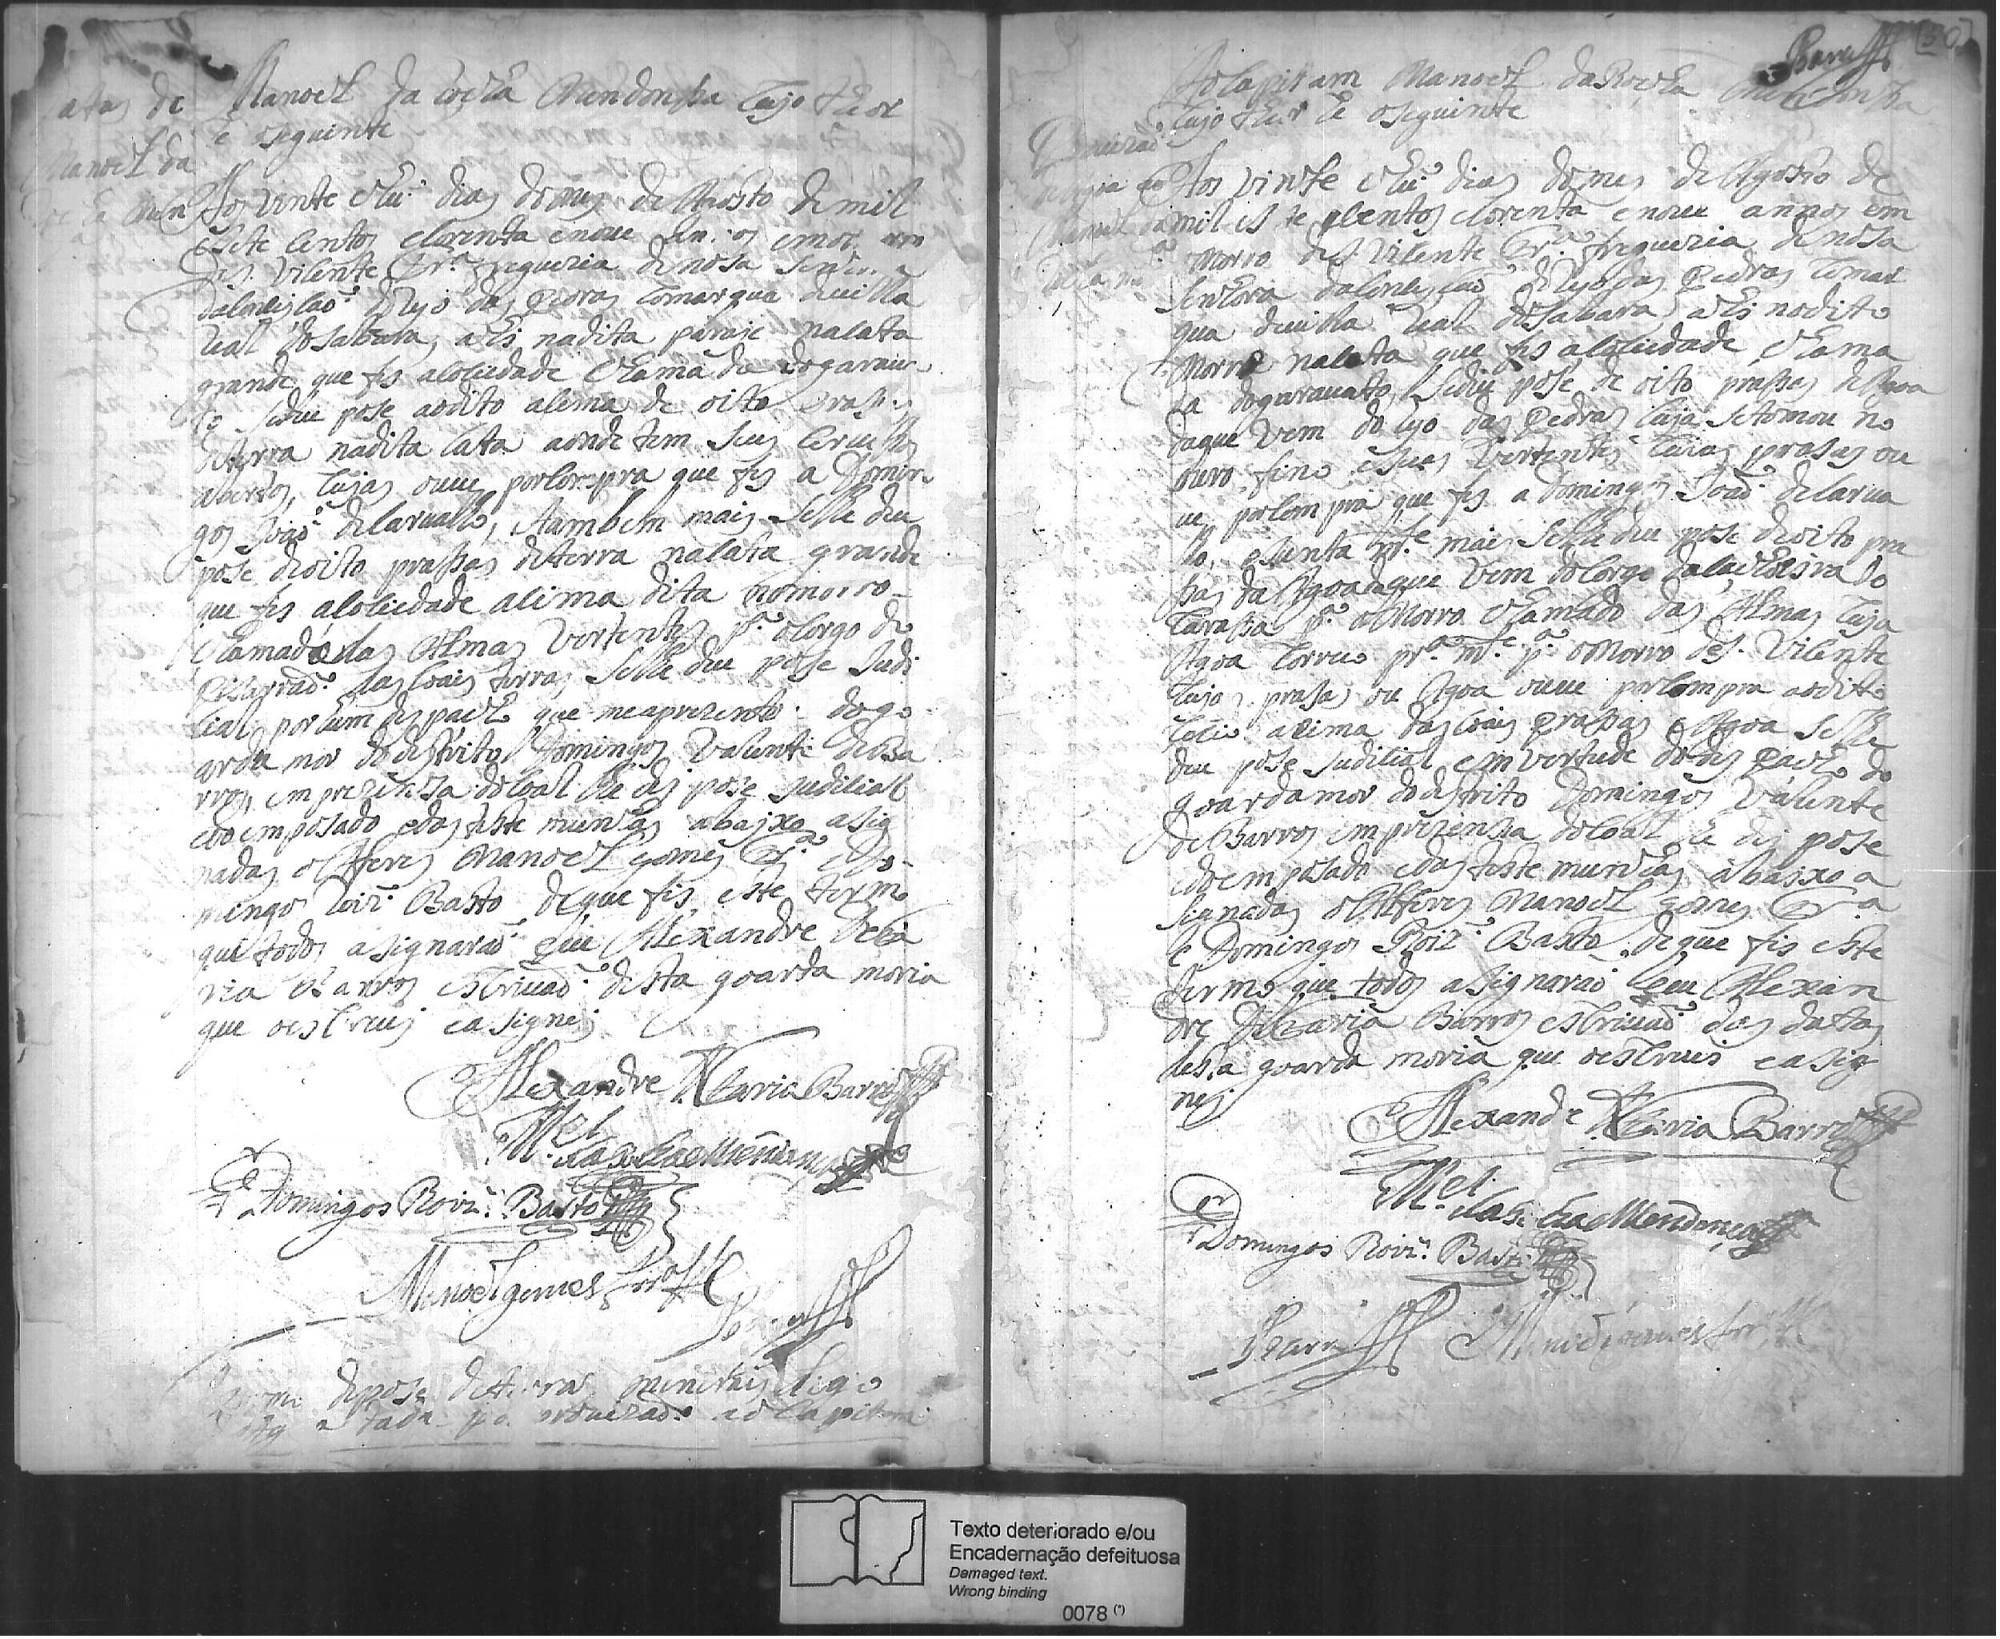 Manoel da Rocha Mendonssa Cujo theor
he oseguinte
atas de
Manoel da
Rocha Men
Aos vinte e hũ dias domes de Agosto de mil
esete Centos e Corenta enove annos em
de S. Vicente Frr.ª freguezia de nosa Senhora
da Conceisaõ do Rio das Pedras Comarqua da villa
Real do Sabara, ahi na dita paraje nalata
grande que fis a Sociedade chamada do garavat
to sedeu pose ao dito asima de oito prasas
de terra na dita lata aonde tem seus servissos
abertos, Cujas ouve por Compra que fis a Domin
gos Joaõ de Carvalho, e tambem mais selhe deu
pose de oito prassas de terra na lata grande
que fis a Sociedade asima dita no morro
chamado das Almas Vertentes p.ª o Corgo do
das Coais terras selhe deu pose Judi
cial por hum despacho que me aprezentou do go
arda mor do destrito Domingos Valente de Ba
rros, em prezensa do Coal lhe dej pose Judicial
e do emposado e das teste munhas abajxo asig
nadas o Alferes Manoel gomes Fr.ª e Do
mingos Roiz Basto de que fis este termo
que todos asignaraõ e eu Alexandre de Fa
ria Barros escrivaõ desta goarda moria
que oescrevj easignej
Alexandre de Faria Barros
M.el da Rocha e Mendonça
Domingos Roiz. Basto
Manoel gomes Frr.ª
Barros
Termo de pose de terras minerais
ao Capitam
Barros
50
Ao Capitam Manoel da Rocha Mendonssa
Cujo theor he oseguinte
Aos vinte e hũ dias do mes de Agosto de
mil e sete sentos e Corenta enove annos em
o Morro de S. Vicente Frr.ª freguezia de nosa
Senhora da Conceisaõ do Rio das Pedras Comar
qua da villa Real do Sabara ahi nodito
Morro nalata que fis a Sociedade chama
da do garavatto, sedeu pose de oito prassas de Agoa
da que vem do Rio das Pedras Cuja se tomou no
ouro fino e suas Vertentes Cujas prasas ou
ve por Compra que fis a Domingos Joaõ de Carva
lho, e junta m.te mais selhe deu pose de oito pra
sas da Agoa da que vem do Corgo da Cachoeira do
Carassa p.ª o Morro chamado das Almas Cuja
Agoa Correo pr.ª m.te p.ª o Morro de S. Vicente
Cujas prasas ou Agoa ouve por Compra ao dito
asima das Coais prassas e Agoa selhe
deu pose Judicial em vertude do des pacho do
goarda mor do destrito Domingos Valente
de Barros em prezensa do Coal lhe dej pose
e do emposado e das teste munhas abajxo a
signadas o Alferes Manoel gomes Fr.ª
e Domingos Roiz Basto de que fis este
termo que todos asignaraõ e eu Alexan
dre de Faria Barros escrivaõ das datas
desta goarda moria que oescrevi easig
nej
Alexandre de Faria Barros
M.el da Rocha e Mendonça
Domingos Roiz. Basto
Barros Manoel gomes Frr.ª
Texto deteriorado e/ou
Encadernação defeituosa
Damaged text.
Wrong binding
0078 (*)